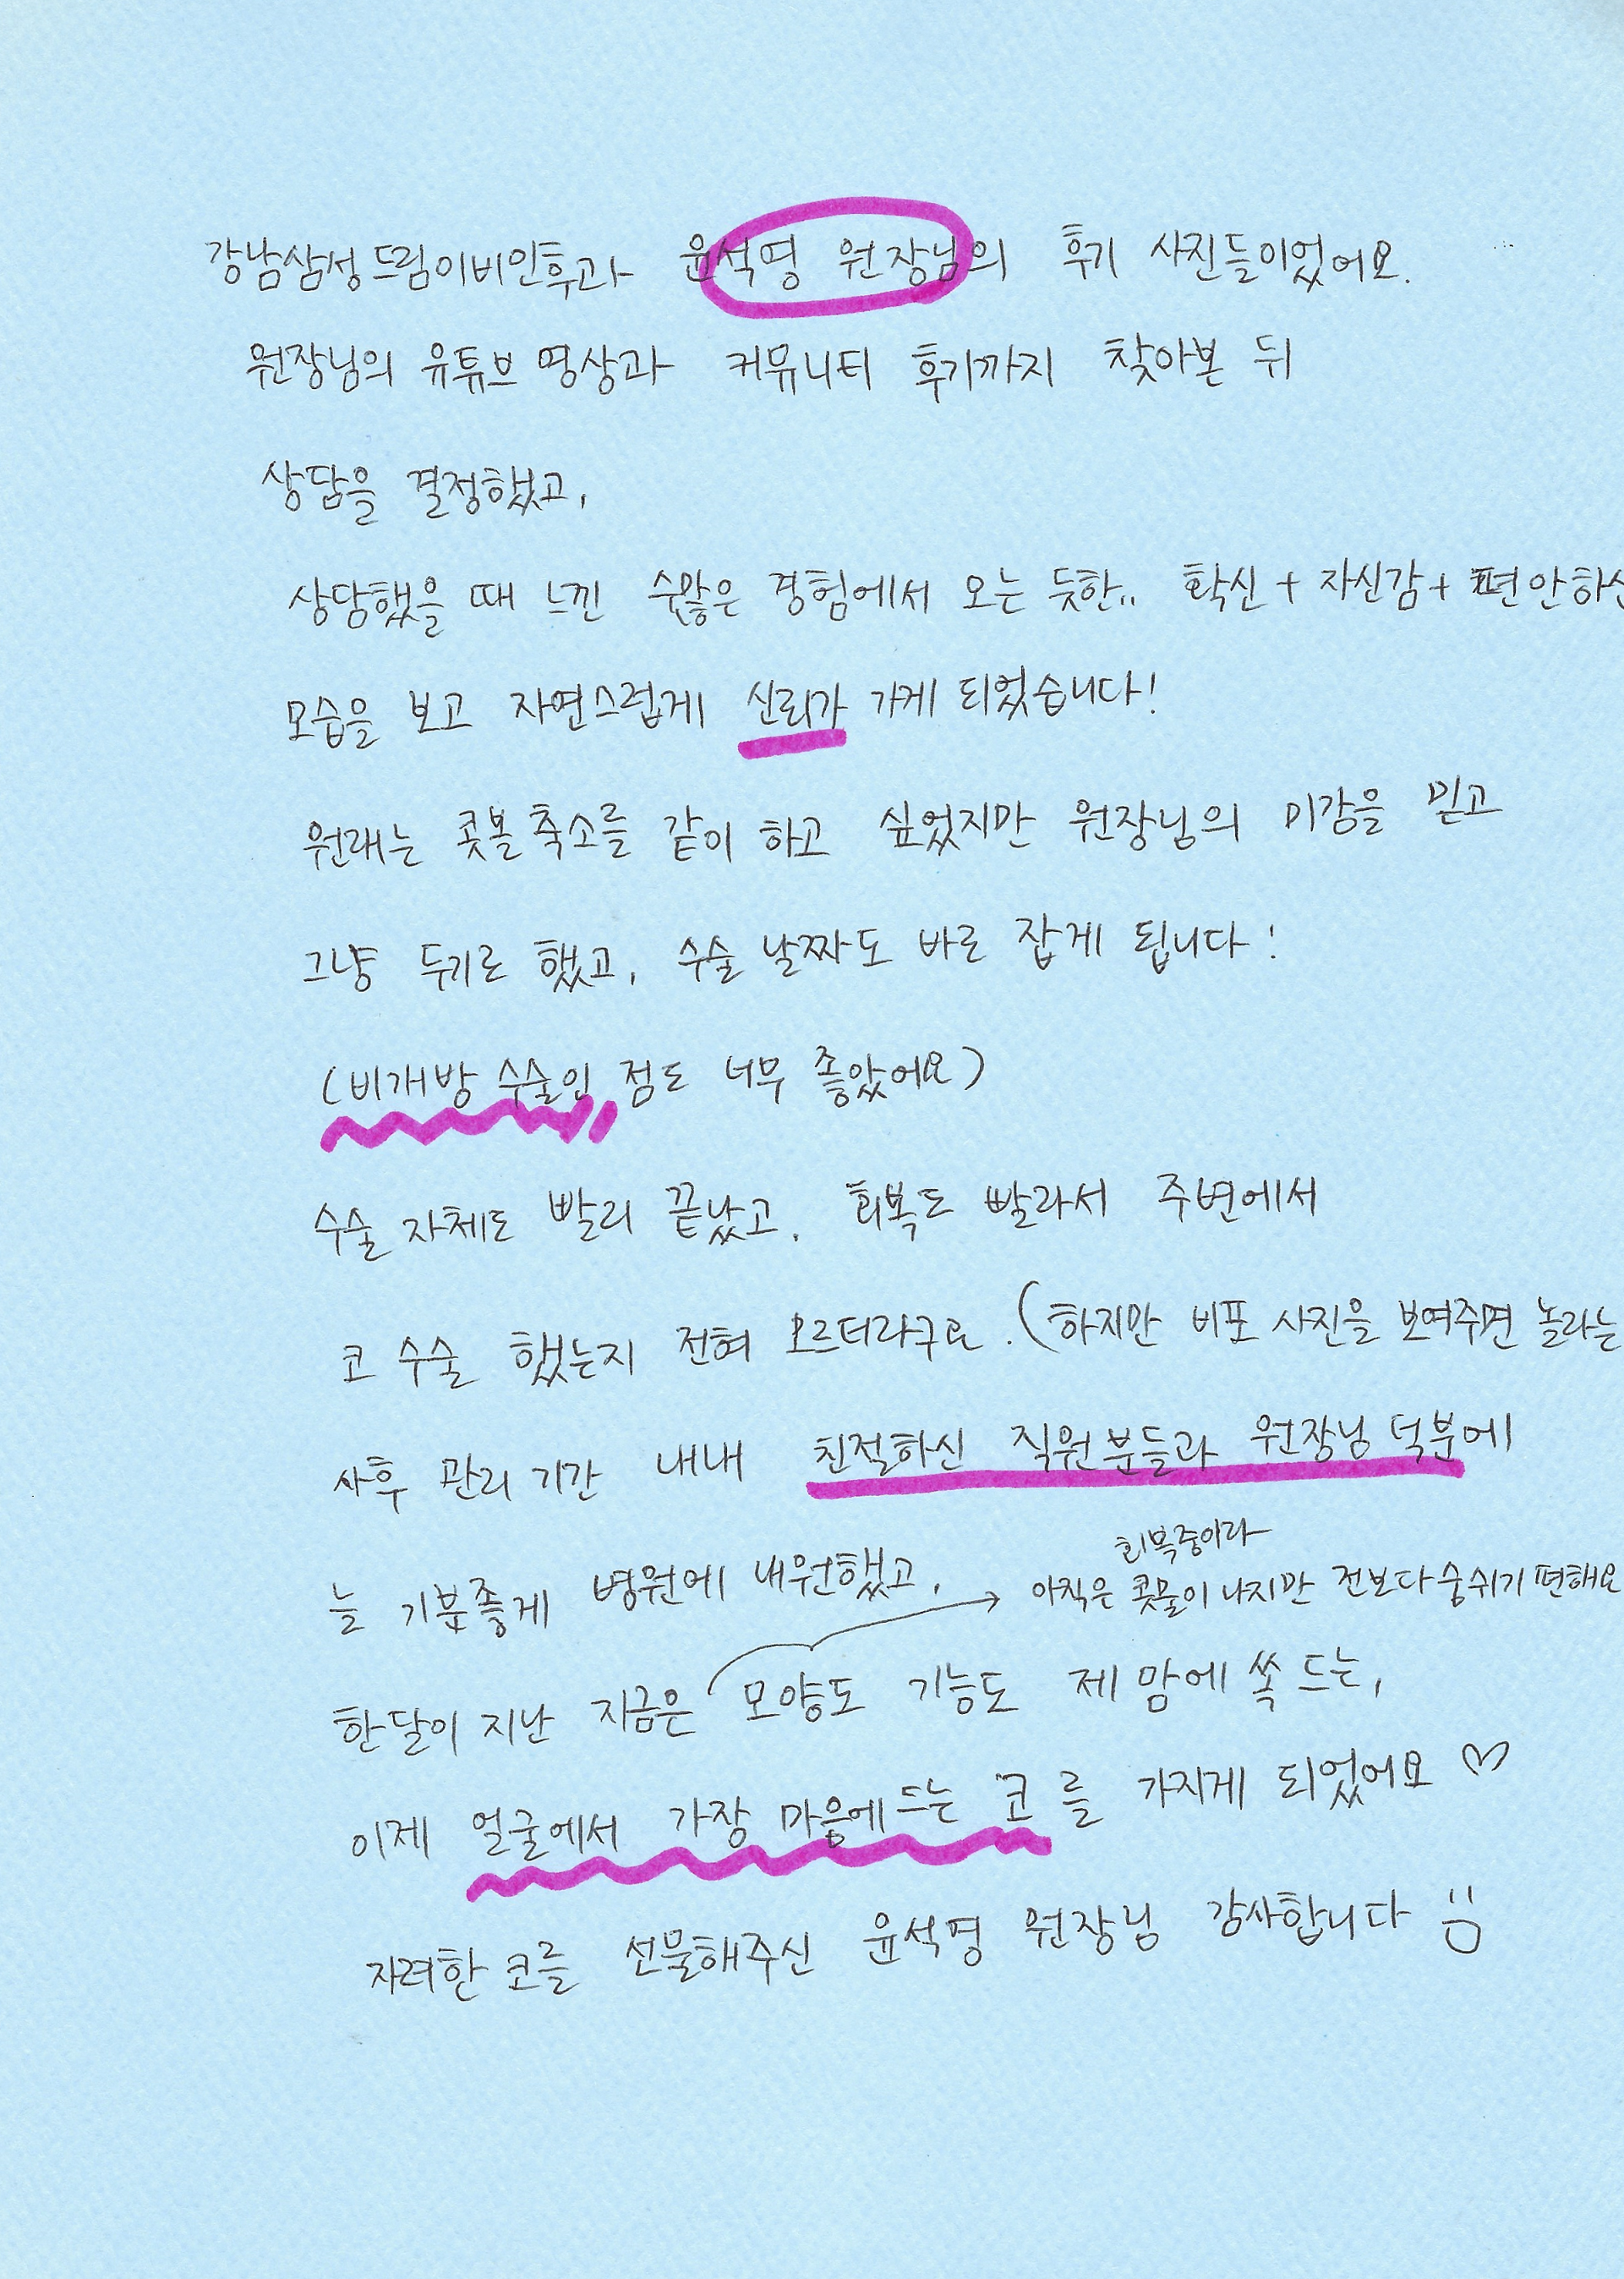 강남삼성드림이비인후과 윤석영 원장님의 후기 사진들이었어요.
원장님의 유튜브 영상과 커뮤니티 후기까지 찾아본 뒤
상담을 결정했고,
상담했을 때 느낀 수많은 경험에서 오는 듯한.. 확신 + 자신감 + 편안하신
모습을 보고 자연스럽게 신뢰가 가게 되었습니다!
원래는 콧볼축소를 같이 하고 싶었지만 원장님의 미감을 믿고
그냥 두기로 했고, 수술 날짜도 바로 잡게 됩니다!
(비개방 수술인 점도 너무 좋았어요)
수술 자체도 빨리 끝났고, 회복도 빨라서 주변에서
코 수술 했는지 전혀 모르더라구요. (하지만 비포 사진을 보여주면 놀라는
사후 관리 기간 내내 친절하신 직원분들과 원장님 덕분에
늘 기분좋게 병원에 내원했고,
회복중이라
→ 아직은 콧물이 나지만 전보다 숨쉬기 편해요
한달이 지난 지금은 모양도 기능도 제 맘에 쏙 드는,
이제 얼굴에서 가장 마음에 드는 코를 가지게 되었어요 ♡
자려한 코를 선물해주신 윤석영 원장님 감사합니다